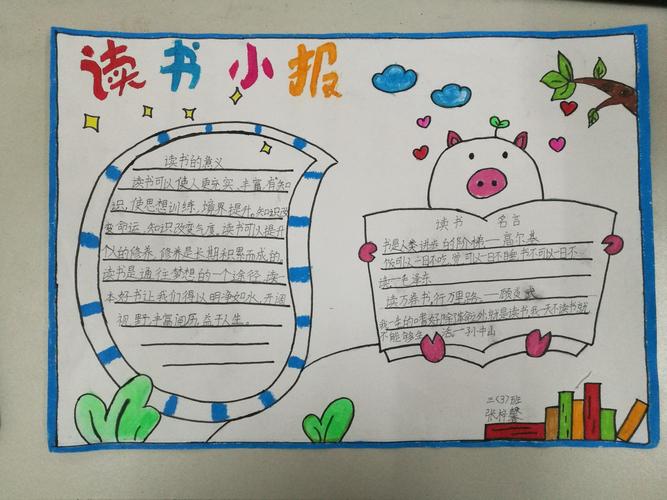 读书小报
读书的意义
读书可以使人更充实、丰富,有知
识,使思想训练,境界提升。知识改
变命运,知识改变气度,读书可以提升
人的修养,修养是长期积累而成的。
读书是通往梦想的一个途径,读一
本好书让我们得以明净如水,开阔
视野,丰富阅历,益于人生。
读书 名言
书是人类进步的阶梯——高尔基
饭可以一日不吃,觉可以一日不睡,书不可以一日不
读——毛泽东
读万卷书,行万里路。——顾炎武
我一生的嗜好除革命外就是读书,我一天不读书就
不能够生活。——孙中山
三(3)班
张梓馨